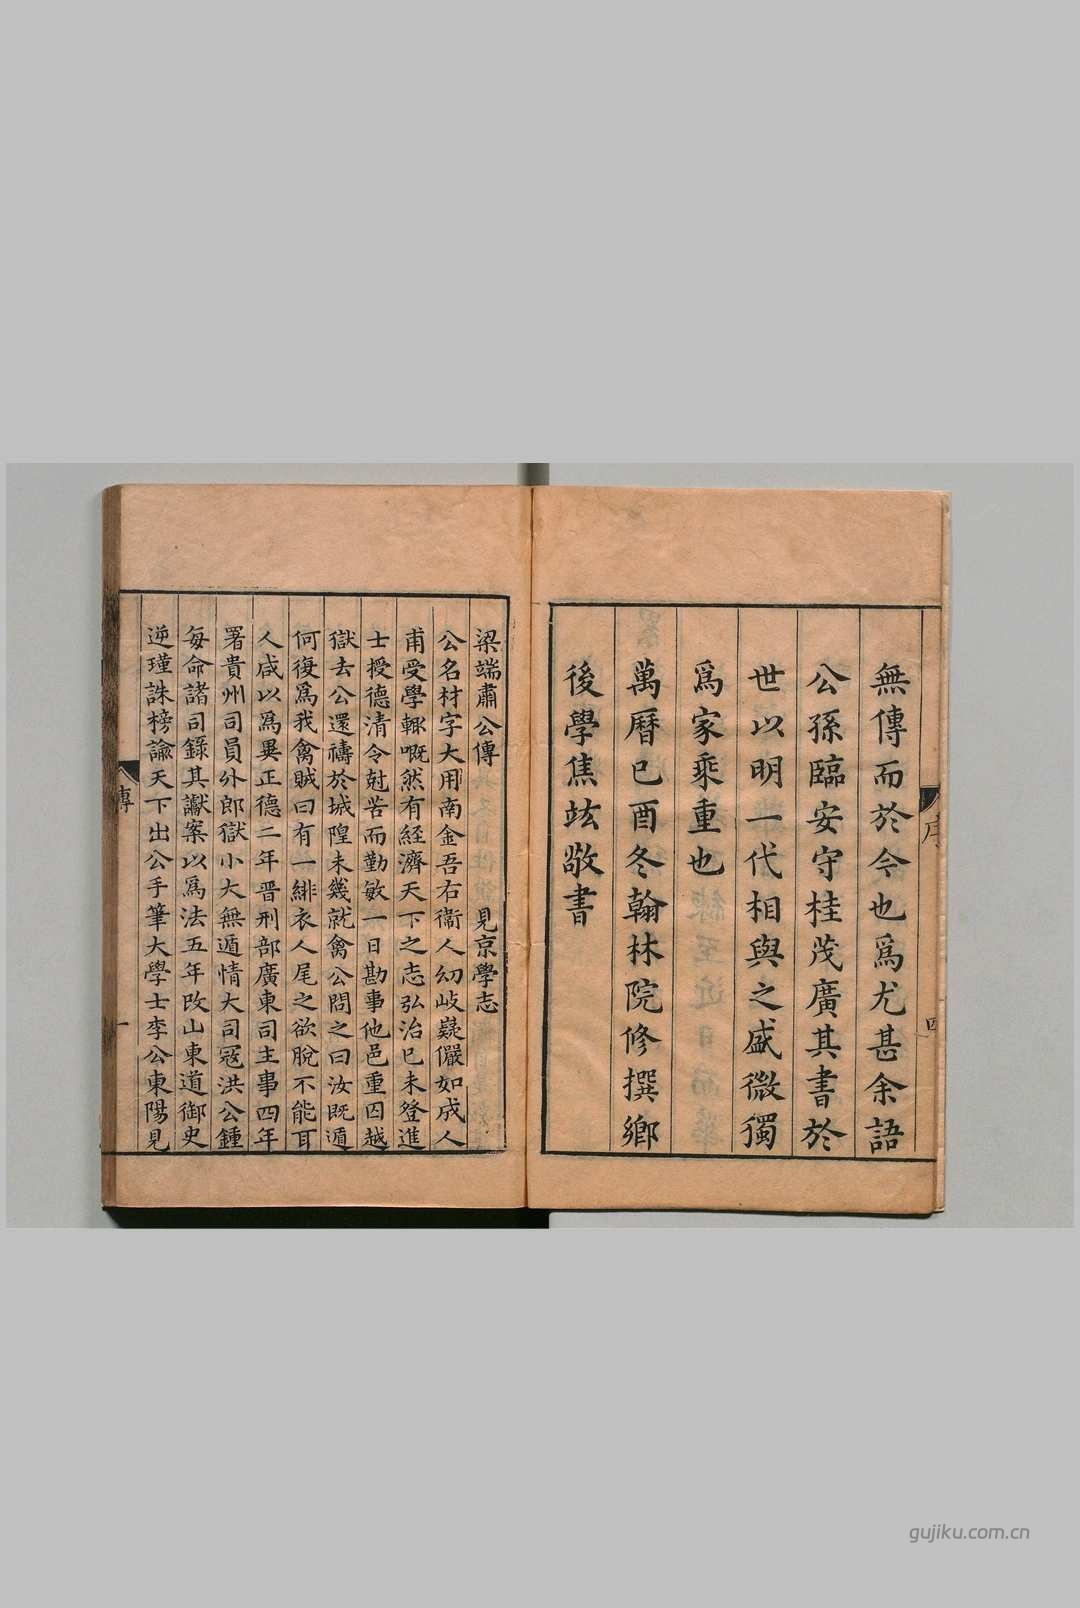 無傳而於今也爲尤甚余語
公孫臨安守桂茂廣其書於
世以明一代相與之盛微獨
爲家乘重也
萬曆己酉冬翰林院修撰鄉
後學焦竑敬書
序
四
梁端肅公傳
見京學志
公名材字大用南金吾右衞人幼岐嶷儼如成人
甫受學輒嘅然有經濟天下之志弘治己未登進
士授德清令尅苦而勤敏一日勘事他邑重囚越
獄去公還禱於城隍未幾就禽公問之曰汝既遁
何復爲我禽賊曰有一緋衣人尾之欲脫不能耳
人咸以爲異正德二年晉刑部廣東司主事四年
署貴州司員外郎獄小大無遁情大司寇洪公鍾
每命諸司錄其讞案以爲法五年改山東道御史
逆瑾誅榜諭天下出公手筆大學士李公東陽見
傳
一
gujiku.com.cn